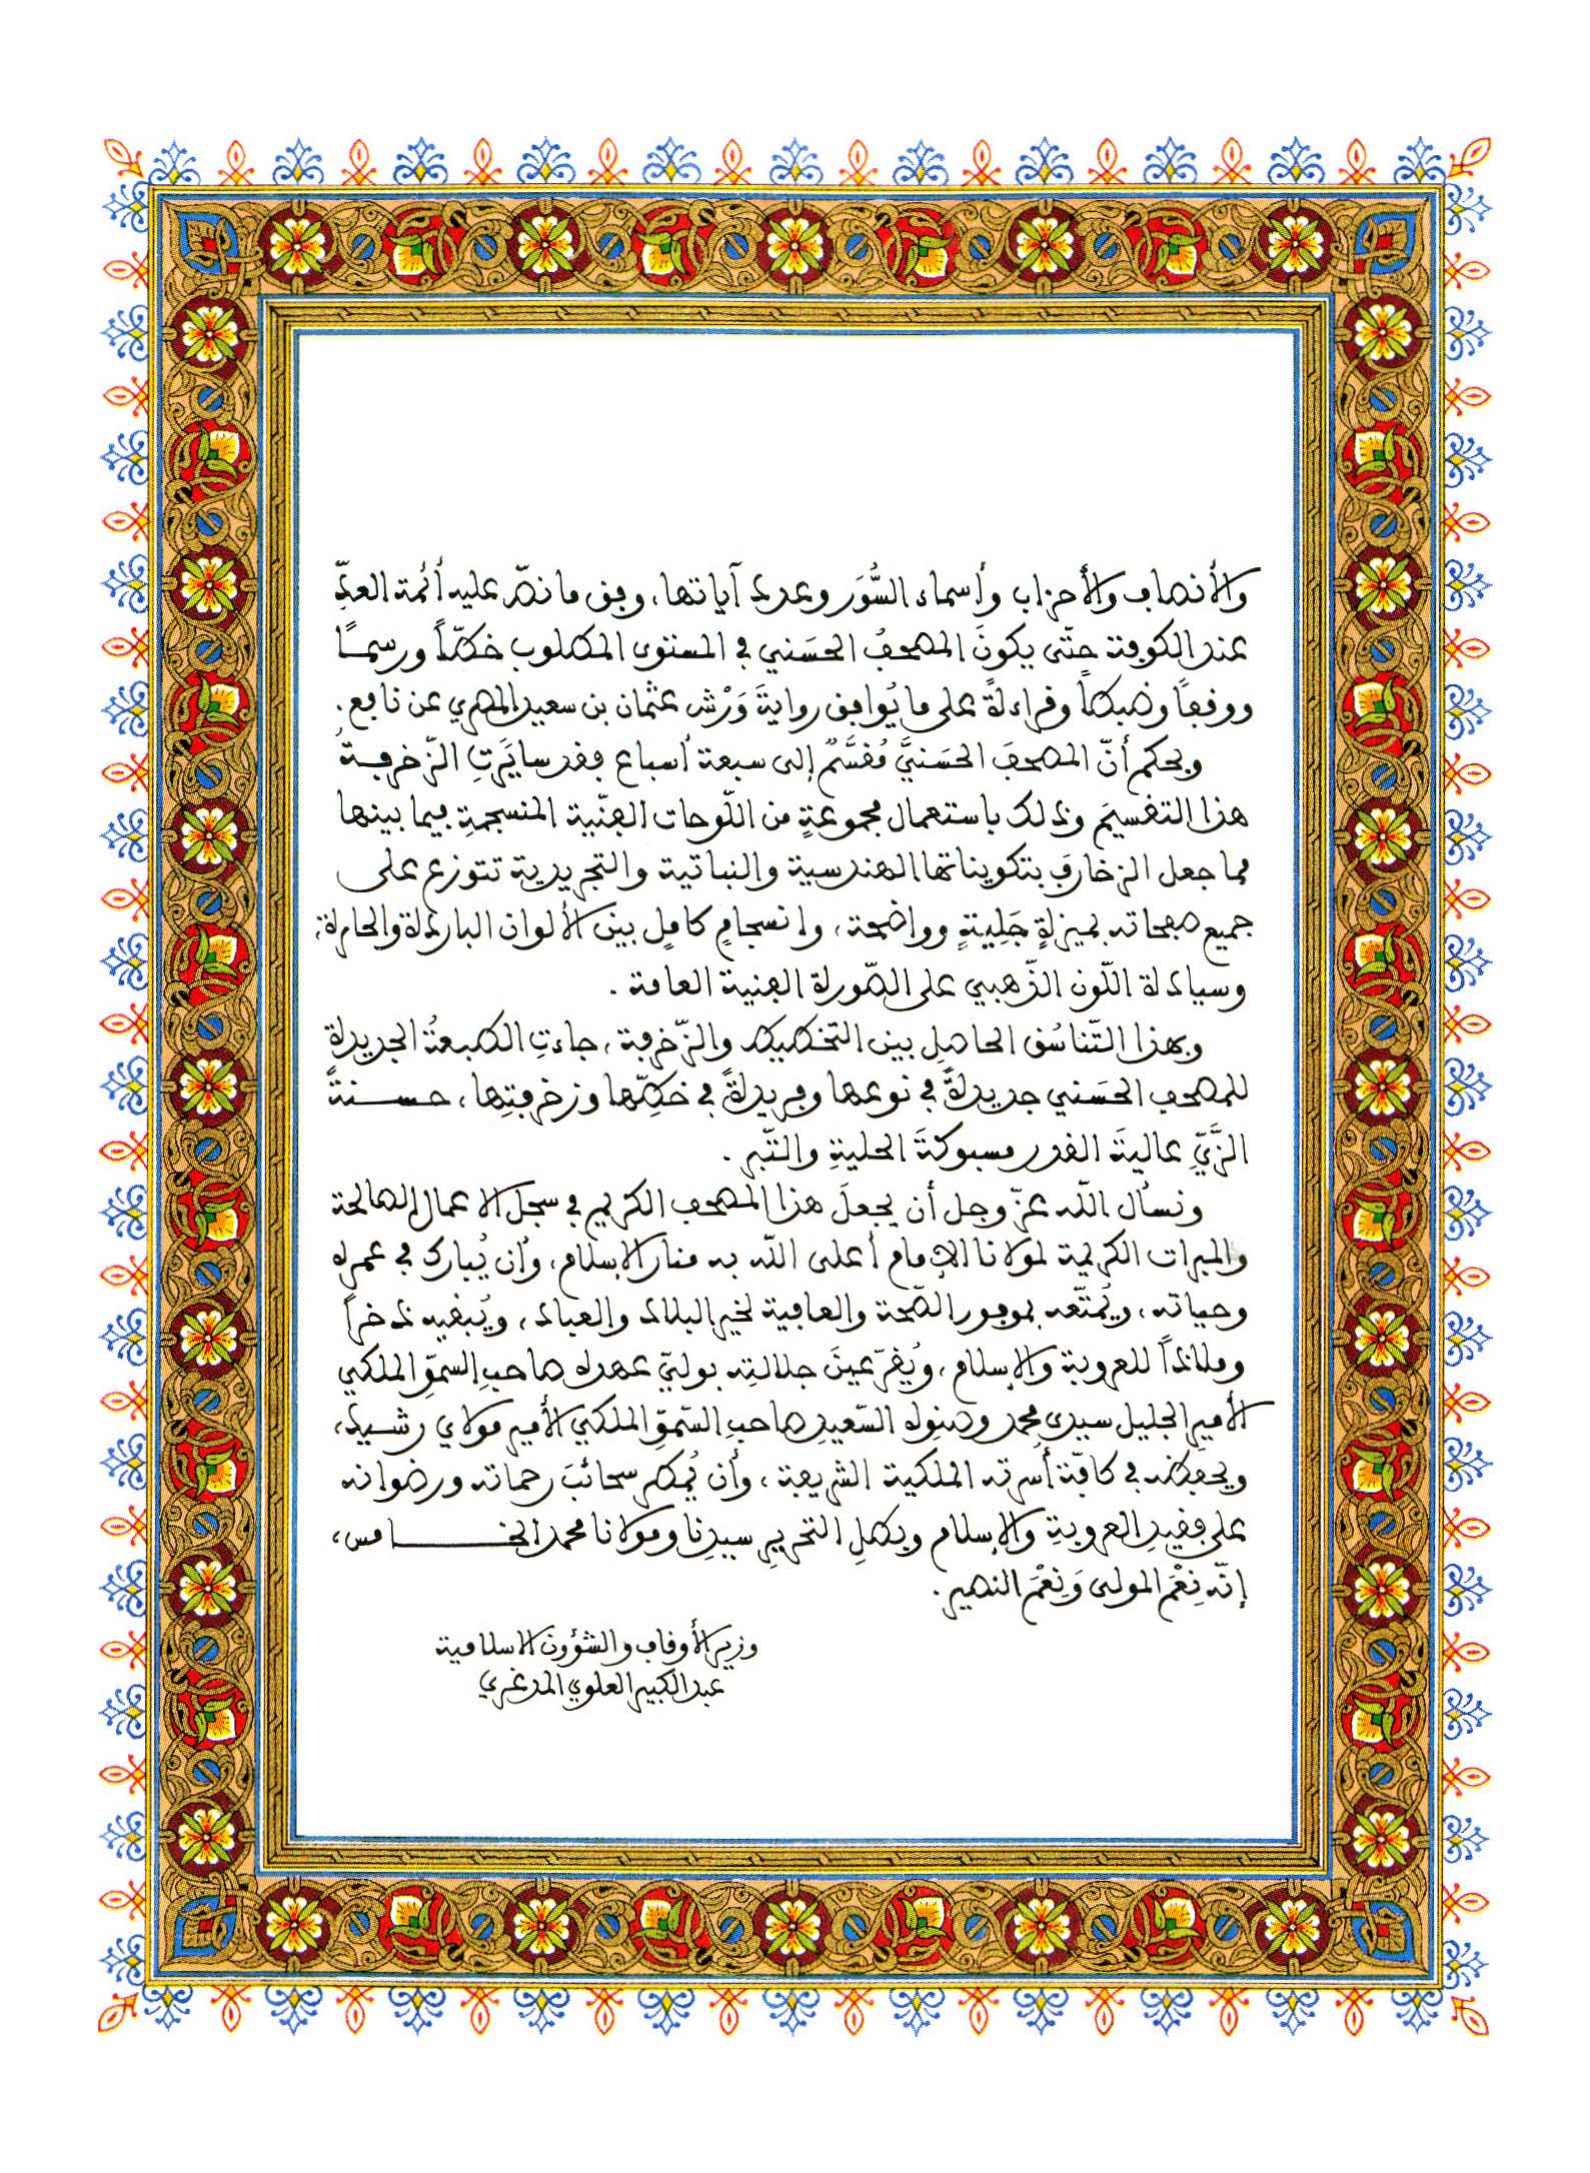 والأنصاف والأحزاب وأسماء السُّوَر وعدد آياتها، وفق ما نصّ عليه أئمة العدِّ
عند الكوفة حتّى يكونَ المصحفُ الحسَني في المستوى المطلوب خطّاً ورسمًا
ووقفاً وضبطاً وقراءةً على ما يُوافق روايةَ وَرْش عثمان بن سعيد المصري عن نافع.
وبحكم أنّ المصحفَ الحسَنيَّ مُقسَّمٌ إلى سبعة أسباع فقد سايَرَتِ الزّخرفةُ
هذا التقسيمَ وذلك باستعمال مجموعةٍ من اللّوحات الفنّية المنسجمةِ فيما بينها
مما جعل الزخارفَ بتكويناتها الهندسية والنباتية والتجريدية تتوزع على
جميع صفحاته بميزةٍ جَلِيةٍ وواضحة، وانسجامٍ كاملٍ بين الألوان الباردة والحارة،
وسيادة اللّون الذّهبي على الصّورة الفنية العامة .
وبهذا التّناسُق الحاصلِ بين التخطيط والزّخرفة، جاءتِ الطبعةُ الجديدة
للمصحف الحسَني جديدةً في نوعها وفريدةً في خطِّها وزخرفتِها، حسنةَ
الزَّيِّ عاليةَ القدر مسبوكةَ الحليةِ والتّبر .
ونسأل اللّه عزّ وجل أن يجعلَ هذا المصحف الكريم في سجل الاعمال الصالحة
والمبرات الكريمة لمولانا الإمام أعلى اللّه به منار الإسلام، وأن يُبارك في عمره
وحياته، ويُمتّعه بموفور الصّحة والعافية لخير البلاد والعباد، ويُبقيه ذخراً
وملاذاً للعروبة والإسلام، ويُقرّ عينَ جلالتِه بوليّ عهده صاحبِ السموّ الملكي
الأمير الجليل سيدي محمد وصنوه السّعيدِ صاحبِ السّموّ الملكي الأمير مولاي رشيد،
ويحفظه في كافّة أُسرته الملكية الشريفة، وأن يُمطر سحائبَ رحماته ورضوانه
على فقيدِ العروبةِ والإسلام وبطلِ التحريرِ سيدِنا ومولانا محمد الخامس،
إنّه نِعْمَ المولى وَنِعْمَ النصير.
وزير الأوقاف والشؤون الاسلامية
عبد الكبير العلوي المدغري